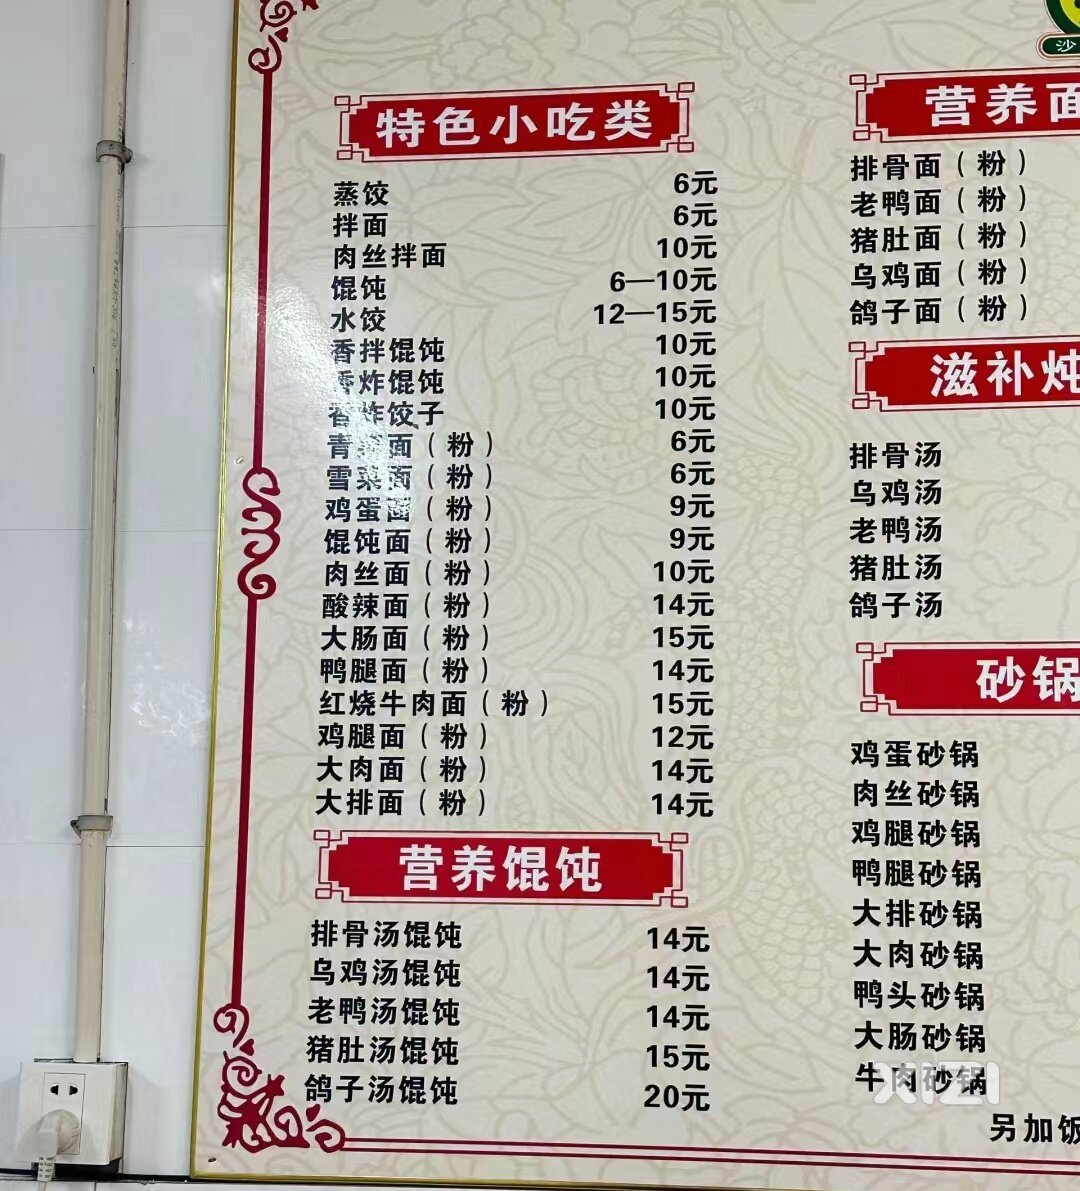 特色小吃类
蒸饺 6元
拌面 6元
肉丝拌面 10元
馄饨 6—10元
水饺 12—15元
香拌馄饨 10元
香炸馄饨 10元
香炸饺子 10元
青菜面（粉） 6元
雪菜面（粉） 6元
鸡蛋面（粉） 9元
馄饨面（粉） 9元
肉丝面（粉） 10元
酸辣面（粉） 14元
大肠面（粉） 15元
鸭腿面（粉） 14元
红烧牛肉面（粉） 15元
鸡腿面（粉） 12元
大肉面（粉） 14元
大排面（粉） 14元
营养馄饨
排骨汤馄饨 14元
乌鸡汤馄饨 14元
老鸭汤馄饨 14元
猪肚汤馄饨 15元
鸽子汤馄饨 20元
沙
营养面
排骨面（粉）
老鸭面（粉）
猪肚面（粉）
乌鸡面（粉）
鸽子面（粉）
滋补炖
排骨汤
乌鸡汤
老鸭汤
猪肚汤
鸽子汤
砂锅
鸡蛋砂锅
肉丝砂锅
鸡腿砂锅
鸭腿砂锅
大排砂锅
大肉砂锅
鸭头砂锅
大肠砂锅
牛肉砂锅
另加饭